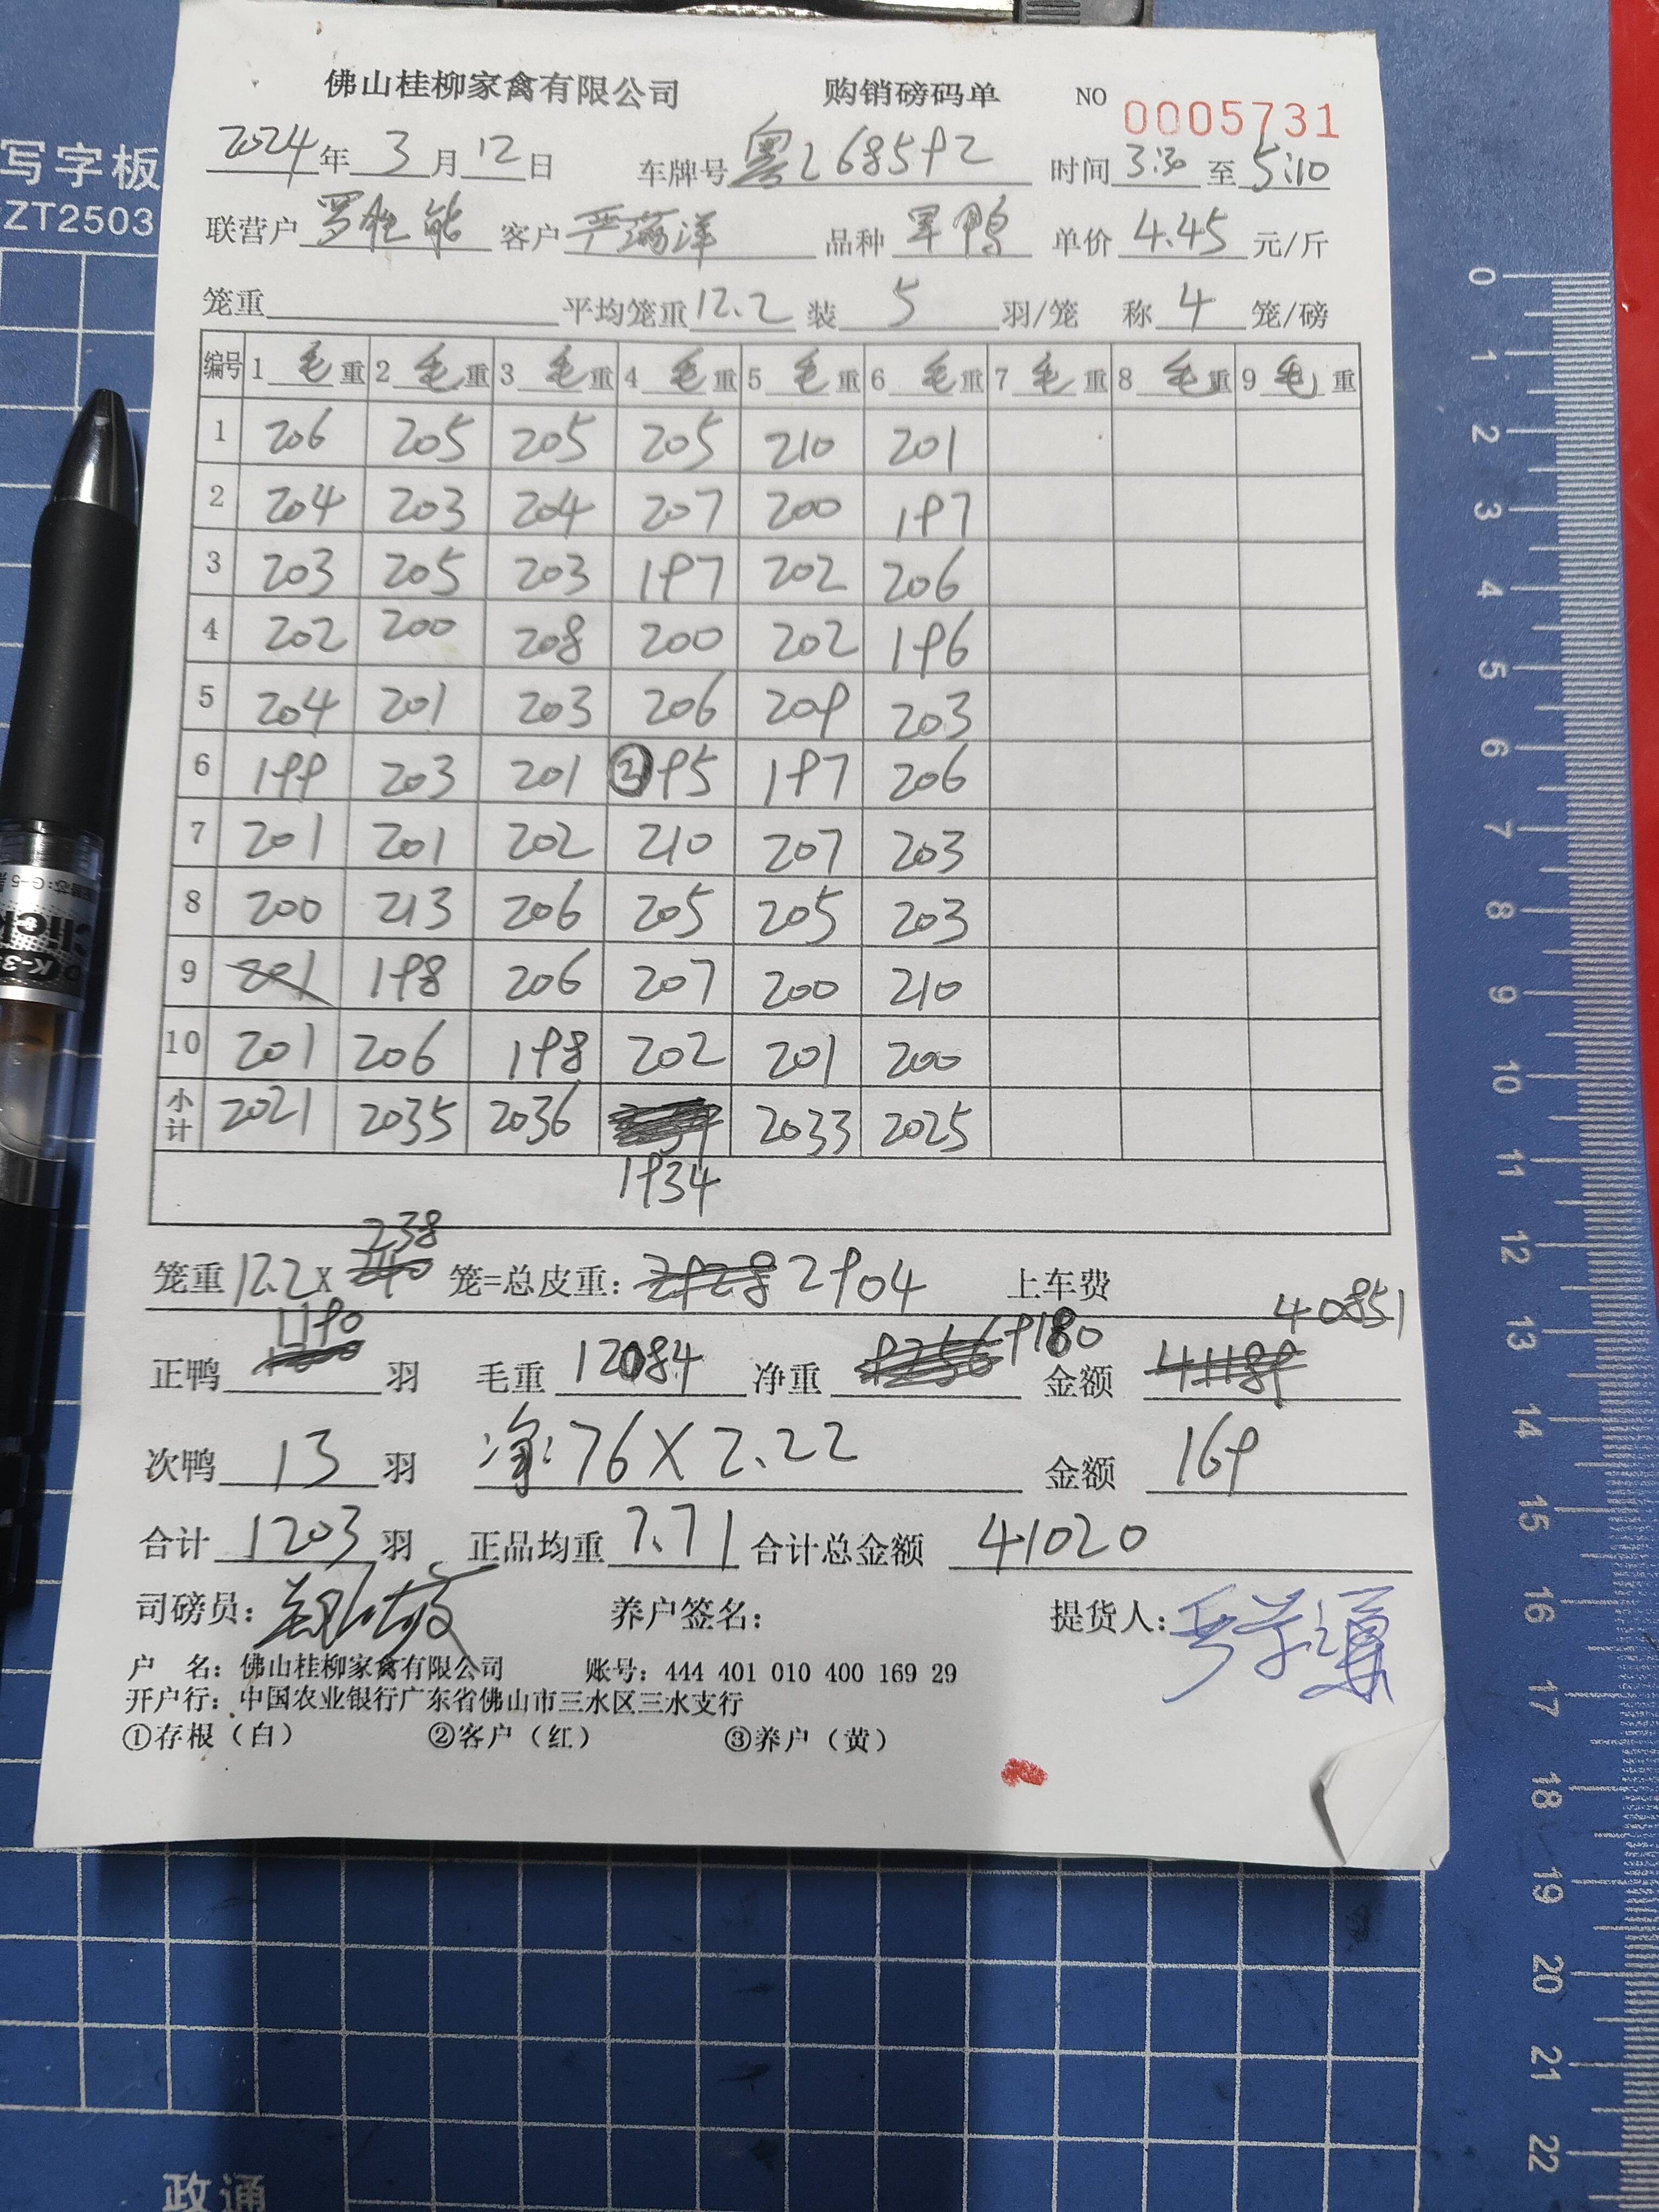 写字板
ZT2503
佛山桂柳家禽有限公司 购销磅码单 NO 0005731
2024年 3月12日 车牌号 粤L68592 时间 3:30 至 5:10
联营户 罗 能 客户 严 洋 品种 军鸭 单价 4.45 元/斤
笼重 平均笼重 12.2 装 5 羽/笼 称 4 笼/磅
编号 1 毛重 2 毛重 3 毛重 4 毛重 5 毛重 6 毛重 7 毛重 8 毛重 9 毛重
1 206 205 205 205 210 201
2 204 203 204 207 200 197
3 203 205 203 197 202 206
4 202 200 208 200 202 196
5 204 201 203 206 209 203
6 199 203 201 ②95 197 206
7 201 201 202 210 207 203
8 200 213 206 205 205 203
9 201 198 206 207 200 210
10 201 206 198 202 201 200
小计 2021 2035 2036 2033 2025
1934
238
笼重 12.2 X 240 笼=总皮重: 2928 2904 上车费
1190 9180 40851
正鸭 1200 羽 毛重 12084 净重 9256 金额 41189
次鸭 13 羽 净: 76 X 2.22 金额 169
合计 1203 羽 正品均重 7.71 合计总金额 41020
司磅员: 养户签名: 提货人:
户 名: 佛山桂柳家禽有限公司 账号: 444 401 010 400 169 29
开户行: 中国农业银行广东省佛山市三水区三水支行
①存根（白） ②客户（红） ③养户（黄）
K-3
0 1 2 3 4 5 6 7 8 9 10 11 12 13 14 15 16 17 18 19 20 21 22
政通